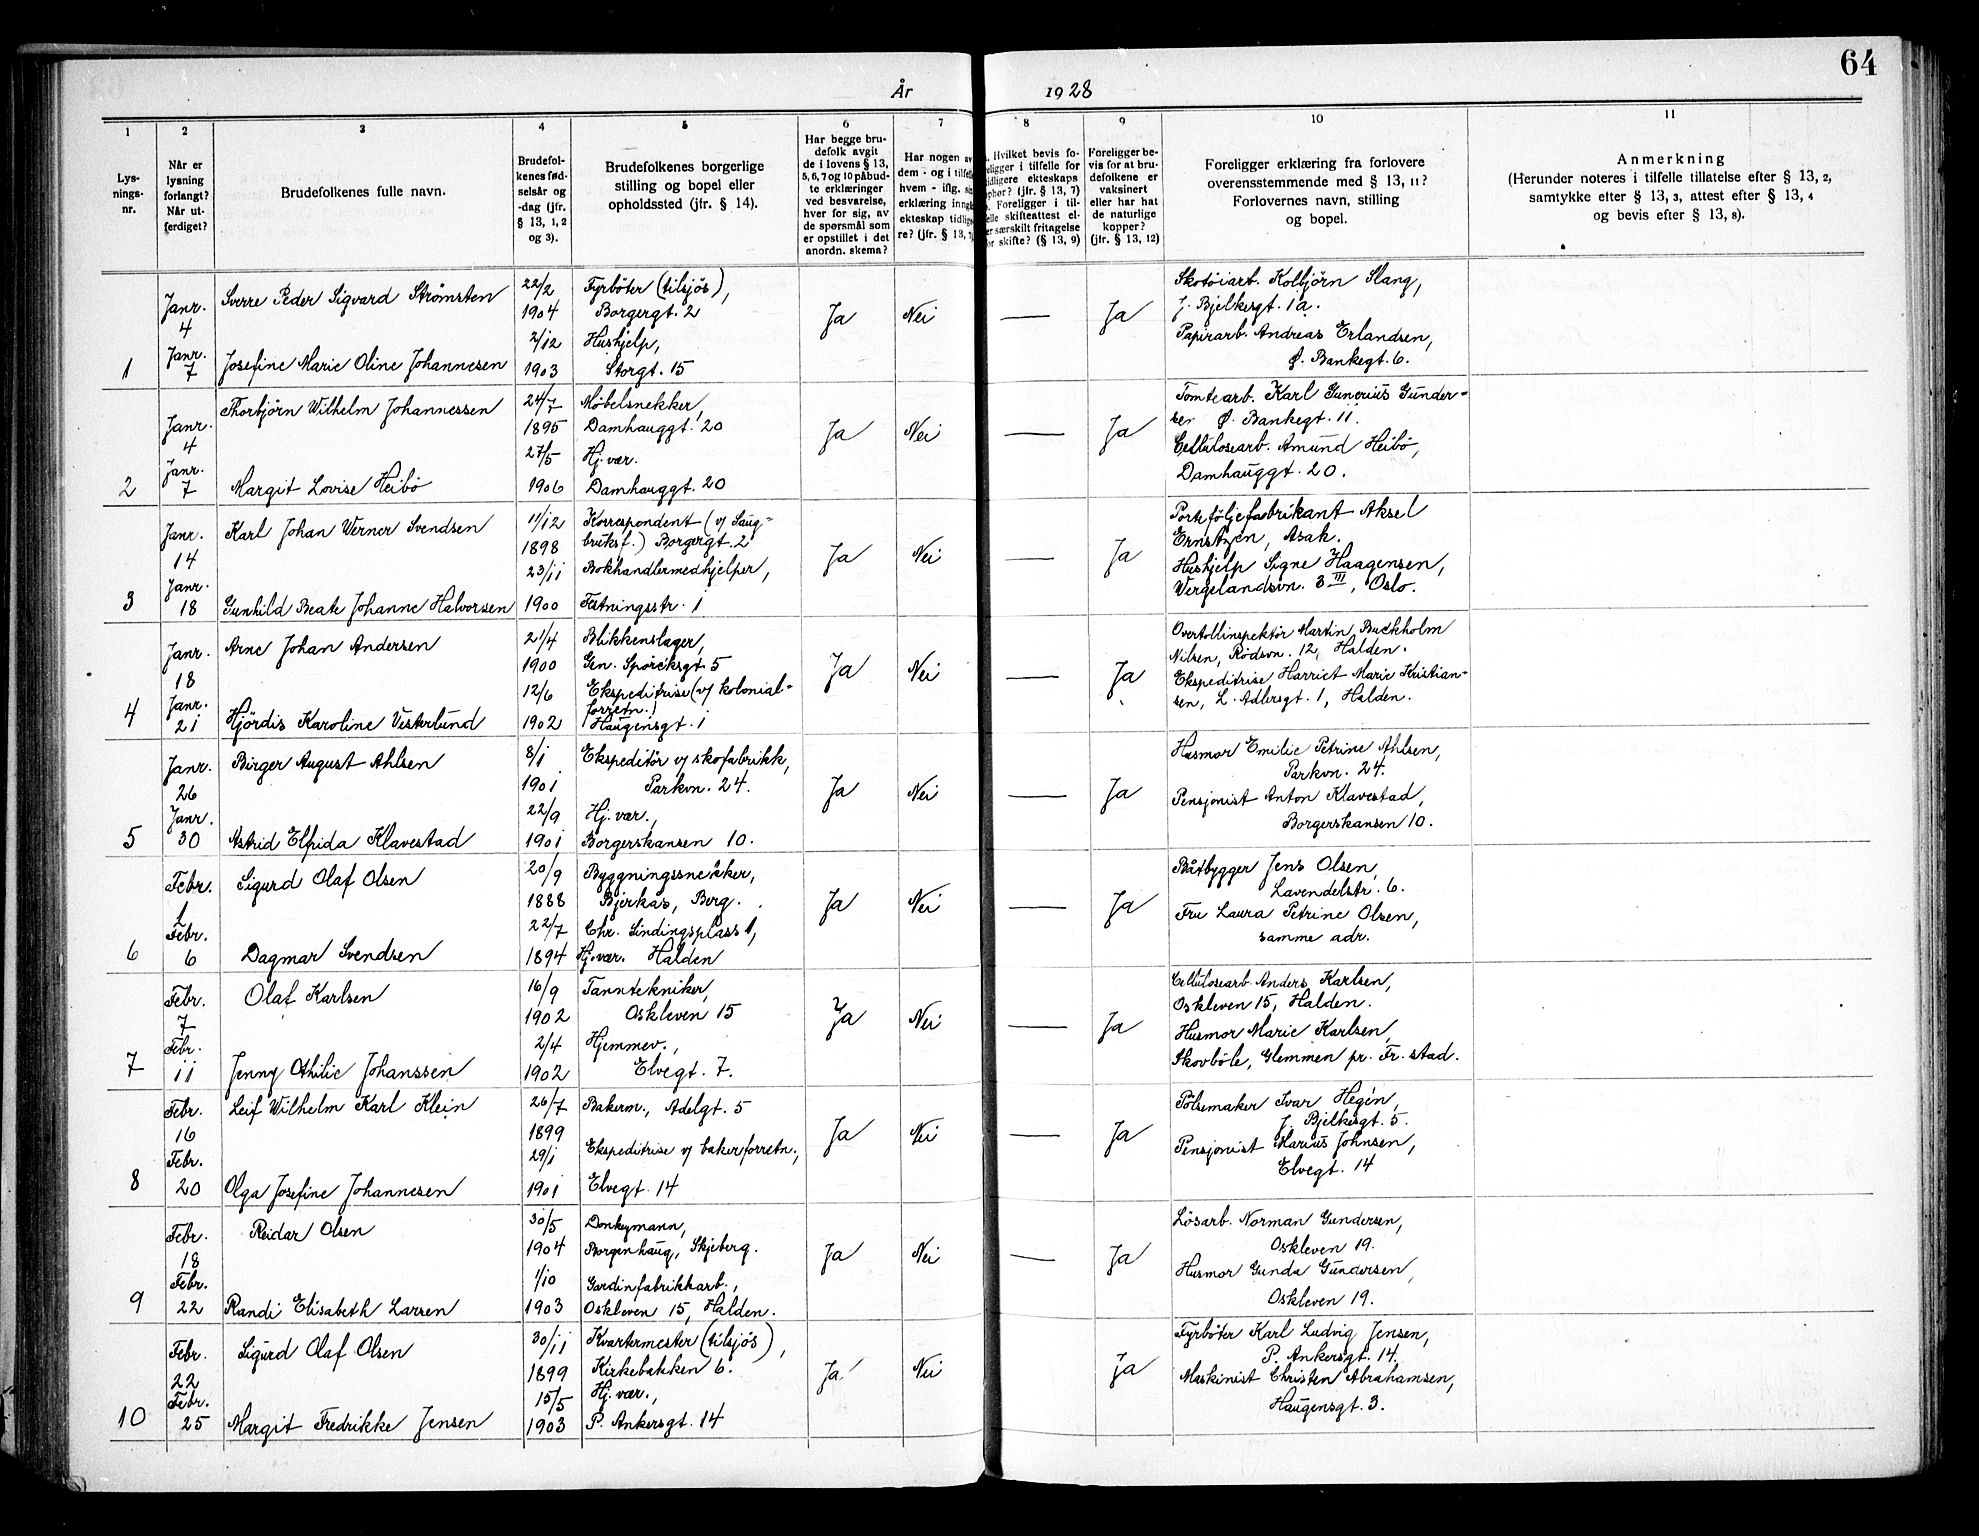 64
År 1928
1 2 3 4 5 6 7 8 9 10 11
Lys-
nings-
nr.
Når er
lysning
forlangt?
Når ut-
ferdiget?
Brudefolkenes fulle navn.
Brudefol-
kenes fød-
selsår og
-dag (jfr.
§ 13, 1, 2
og 3).
Brudefolkenes borgerlige
stilling og bopel eller
opholdssted (jfr. § 14).
Har begge bru-
defolk avgit
de i lovens § 13,
5, 6, 7 og 10 påbud-
te erklæringer
ved besvarelse,
hver for sig, av
de spørsmål som
er opstillet i det
anordn. skema?
Har nogen av
dem - og i tilfelle
hvem - iflg. sin
erklæring inngått
ekteskap tidlige-
re? (jfr. § 13, 7)
Hvilket bevis fo-
religger i tilfelle for
tidligere ekteskaps
ophør? (jfr. § 13, 7)
Foreligger i til-
felle skifteattest el-
ler særskilt fritagelse
for skifte? (§ 13, 9)
Foreligger be-
vis for at bru-
defolkene er
vaksinert
eller har hat
de naturlige
kopper?
(jfr. § 13, 12)
Foreligger erklæring fra forlovere
overensstemmende med § 13, 11?
Forlovernes navn, stilling
og bopel.
Anmerkning
(Herunder noteres i tilfelle tillatelse efter § 13, 2,
samtykke efter § 13, 3, attest efter § 13, 4
og bevis efter § 13, 8).
1
Janr.
4
Janr.
7
Sverre Peder Sigvard Strømsten
Josefine Marie Oline Johannesen
22/2
1904
2/12
1903
Fyrbøter (tilsjøs),
Borgergt. 2
Hushjelp,
Storgt. 15
Ja Nei — Ja
Skotøiarb. Kolbjörn Slang,
J. Bjelkesgt. 1a.
Papirarb. Andreas Erlandsen,
Ø. Bankegt. 6.
2
Janr.
4
Janr.
7
Thorbjörn Wilhelm Johannessen
Margit Lovise Heibö
24/7
1895
27/5
1906
Møbelsnekker,
Damhauggt. 20
Hj. vær.
Damhauggt. 20
Ja Nei — Ja
Tomtearb. Karl Gunerius Gunder-
sen Ø. Bankegt. 11.
Cellulosearb. Amund Heibö,
Damhauggt. 20.
3
Janr.
14
Janr.
18
Karl Johan Werner Svendsen
Gunhild Beate Johanne Halvorsen
11/12
1898
23/11
1900
Korrespondent (v/ Saug-
bruksf.) Borgergt. 2
Bokhandlermedhjelper,
Festningsstr. 1
Ja Nei — Ja
Porteföljefabrikant Aksel
Ernstzen, Asak.
Hushjelp Signe Haagensen,
Vergelandsvn. 3 III, Oslo.
4
Janr.
18
Janr.
21
Arne Johan Andersen
Hjördis Karoline Vesterlund
21/4
1900
12/6
1902
Blikkenslager,
Gen. Sporcksgt. 5
Ekspeditrise (v/ kolonial-
forretn.)
Haugensgt. 1
Ja Nei — Ja
Overtollinspektör Martin Buckholm
Nilsen, Rödsvn. 12, Halden.
Ekspeditrise Harriet Marie Kristian-
sen, L. Adlersgt. 1, Halden.
5
Janr.
26
Janr.
30
Birger August Ahlsen
Astrid Elfrida Klavestad
8/1
1901
22/9
1901
Ekspeditör v/ skofabrikk,
Parkvn. 24.
Hj. vær.,
Borgerskansen 10.
Ja Nei — Ja
Husmor Emilie Petrine Ahlsen,
Parkvn. 24.
Pensjonist Anton Klavestad,
Borgerskansen 10.
6
Febr.
1
Febr.
6
Sigurd Olaf Olsen
Dagmar Svendsen
20/9
1888
22/7
1894
Byggningssnekker,
Bjerkås, Berg.
Chr. Lindingsplass 1,
Hj. vær. Halden
Ja Nei — Ja
Båtbygger Jens Olsen,
Lavendelstr. 6.
Fru Laura Petrine Olsen,
samme adr.
7
Febr.
7
Febr.
11
Olaf Karlsen
Jenny Othilie Johanssen
16/9
1902
2/4
1902
Tanntekniker,
Oskleven 15
Hjemmev.,
Elvegt. 7.
Ja Nei — Ja
Cellulosearb. Anders Karlsen,
Oskleven 15, Halden.
Husmor Marie Karlsen,
Skovböle, Glemmen pr. Fr. stad.
8
Febr.
16
Febr.
20
Leif Wilhelm Karl Klein
Olga Josefine Johannesen
26/7
1899
29/1
1901
Bakerm., Adelgt. 5
Ekspeditrise v/ bakerforretn.,
Elvegt. 14
Ja Nei — Ja
Pölsemaker Ivar Hegén,
J. Bjelkesgt. 5.
Pensjonist Marius Johnsen,
Elvegt. 14
9
Febr.
18
Febr.
22
Reidar Olsen
Randi Elisabeth Larsen
30/5
1904
1/10
1903
Donkeymann,
Borgenhaug, Skjeberg.
Gardinfabrikkarb.,
Oskleven 15, Halden.
Ja Nei — Ja
Lösarb. Norman Gundersen,
Oskleven 19.
Husmor Gunda Gundersen,
Oskleven 19.
10
Febr.
22
Febr.
25
Sigurd Olaf Olsen
Margit Fredrikke Jensen
30/11
1899
15/5
1903
Kvartermester (tilsjøs),
Kirkebakken 6.
Hj. vær.,
P. Ankersgt. 14
Ja Nei Ja
Fyrböter Karl Ludvig Jensen,
P. Ankersgt. 14.
Maskinist Christen Abrahamsen,
Haugensgt. 3.